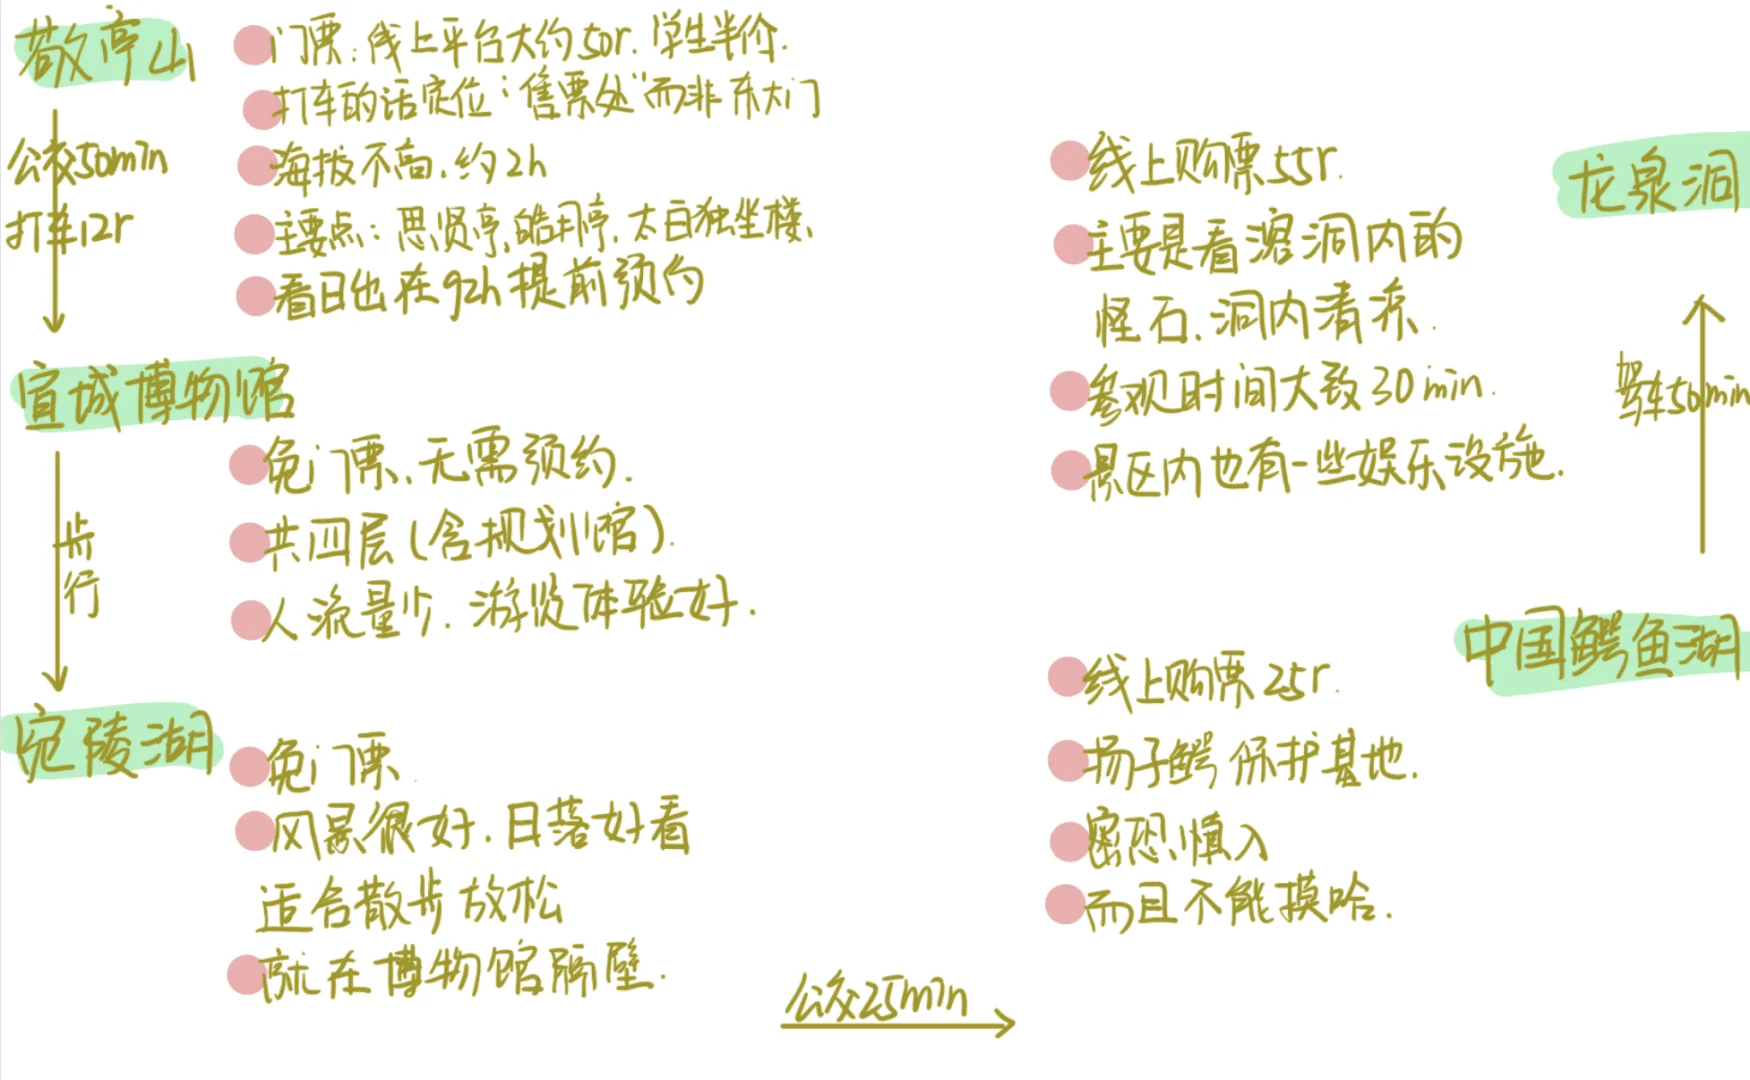 敬亭山
门票:线上平台大约50r.学生半价.
打车的话定位“售票处”而非东大门
海拔不高、约2h
主要点:思贤亭、皓月亭、太白独坐楼、
看日出在92h提前预约
公交50min
打车12r
宣城博物馆
免门票、无需预约.
共四层(含规划馆).
人流量少.游览体验好.
步行
宛陵湖
免门票.
风景很好.日落好看
适合散步放松
就在博物馆隔壁.
公交25min
中国鳄鱼湖
线上购票25r.
扬子鳄保护基地.
密恐慎入
而且不能摸哈.
驾车50min
龙泉洞
线上购票55r.
主要是看溶洞内的
怪石、洞内清凉.
参观时间大致30min.
景区内也有一些娱乐设施.